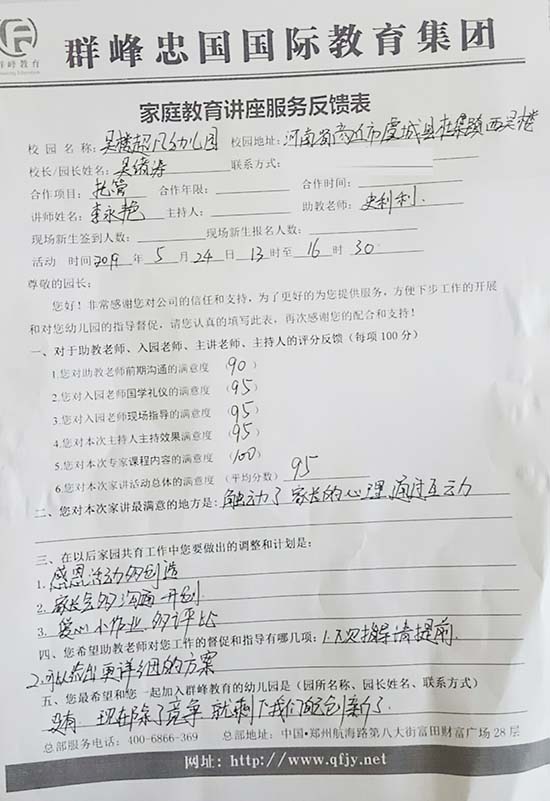 群峰教育
群峰忠国国际教育集团
家庭教育讲座服务反馈表
校 园 名 称:吴楼超凡幼儿园 校园地址:河南省商丘市虞城县杜集镇西吴楼
校长/园长姓名: 联系方式:
合作项目:托管 合作年限: 合作时间:
讲师姓名:李永艳 主持人: 助教老师:史利利.
现场新生签到人数: 现场新生报名人数:
活动 时间2019 年 5 月 24 日 13 时至 16 时 30
尊敬的园长:
您好！非常感谢您对公司的信任和支持，为了更好的为您提供服务，方便下步工作的开展
和对您幼儿园的指导督促，请您认真的填写此表，再次感谢您的配合和支持！
一、对于助教老师、入园老师、主讲老师、主持人的评分反馈（每项 100 分）
1.您对助教老师前期沟通的满意度 (90)
2.您对入园老师国学礼仪的满意度 (95)
3.您对入园老师现场指导的满意度 (95)
4.您对本次主持人主持效果满意度 (95)
5.您对本次专家课程内容的满意度 (100)
6.您对本次家讲活动总体的满意度 (平均分数) 95
二、您对本次家讲最满意的地方是:触动了家长的心理,通过互动
三、在以后家园共育工作中您要做出的调整和计划是:
1.感恩活动多创造
2.家长会多沟通开创
3.爱心小作业,多评比
四、您希望助教老师对您工作的督促和指导有哪几项:1.下次指导请提前.
2.可以给出更详细的方案
五、您最希望和您一起加入群峰教育的幼儿园是（园所名称、园长姓名、联系方式）
没有 现在除了竞争 就剩下我们的创新了.
总部服务电话: 400-6866-369 总部地址: 中国·郑州航海路第八大街富田财富广场 28 层
网址: http://www.qfjy.net